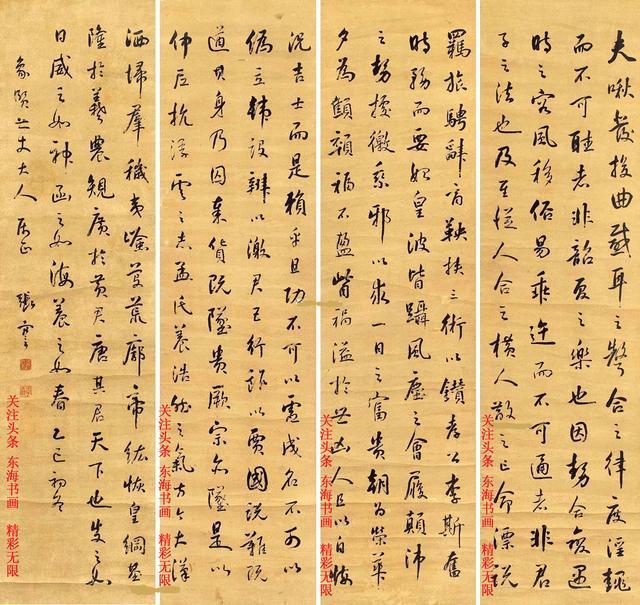 夫啾發投曲感耳之聲合之律度淫䵷
而不可聽者非韶夏之樂也因勢合變遇
時之容風移俗易乖迕而不可通者非君
子之法也及至從人合之橫人散之亡命漂說
羈旅騁辭商鞅挾三術以鑽孝公李斯奮
時務而要始皇彼皆躡風塵之會履顛沛
之勢據徼乘邪以求一日之富貴朝為榮華
夕為顦顇福不盈眥禍溢於世凶人且以自悔
況吉士而是賴乎且功不可以虛成名不可以
偽立韓設辨以激君呂行詐以賈國說難既
遒其身乃囚秦貨既墜貴厥宗亦墜是以
仲尼抗浮雲之志孟氏養浩然之氣方今大漢
洒掃羣穢夷險芟荒廓帝紘恢皇綱基
隆於羲農規廣於黃君唐其君天下也炎之如
日威之如神函之如海養之如春 乙巳初冬
象賢世丈大人 属正 張
关注头条 东海书画 精彩无限
关注头条 东海书画 精彩无限
关注头条 东海书画 精彩无限
关注头条 东海书画 精彩无限